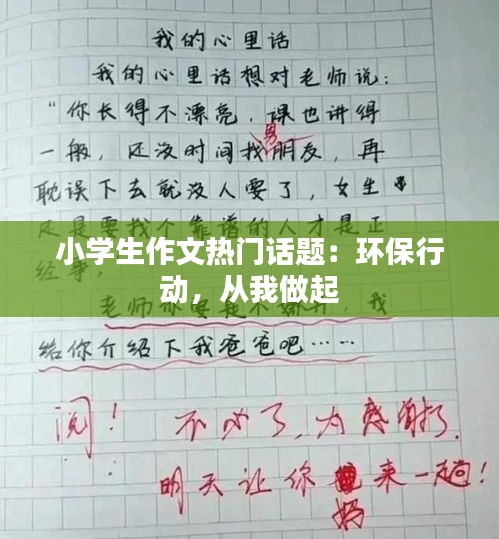 我的心里话
我的心里话想对老师说：
“你长得不漂亮，课也讲得
一般，还没时间找男朋友，再
耽误下去就没人要了，女生
还是要找个靠谱的人才是正
经事。
小学生作文热门话题：环保行
动，从我做起
老师你要是不嫌弃，我
给你介绍下我爸爸吧……
阅！不必了，为感谢
明天让你妈来一趟！